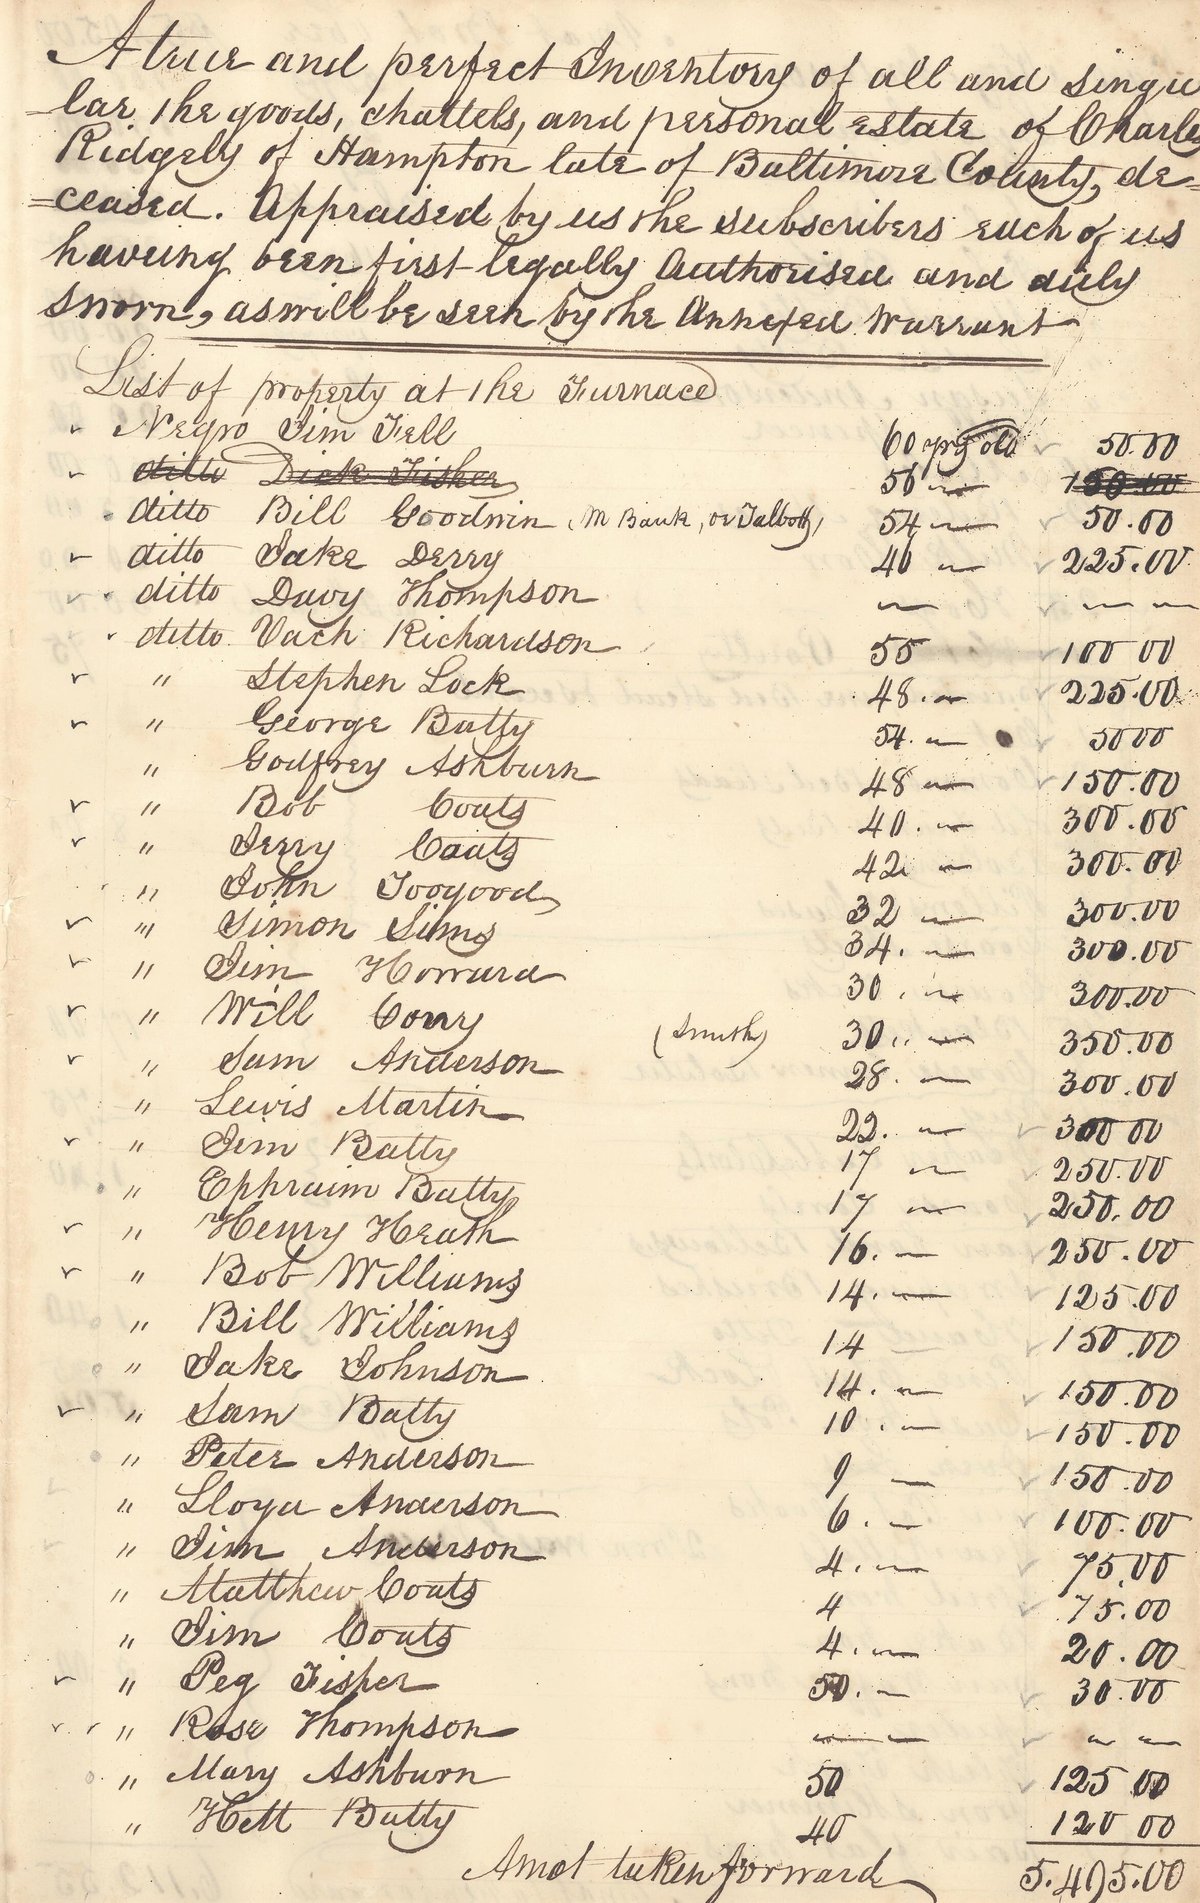 A true and perfect Inventory of all and singu
=lar the goods, chattels, and personal estate of Charles
Ridgely of Hampton late of Baltimore County, de=
=ceased. Appraised by us the subscribers each of us
haveing been first legally Authorised and duly
sworn, as will be seen by the Annexed Warrant
List of property at the Furnace
Negro Jim Fell 60 yrs old 50.00
ditto Dick Fisher 56 150.00
ditto Bill Goodwin (M Bank, or Talbott) 54 50.00
ditto Jake Derry 40 225.00
ditto Davy Thompson — — —
ditto Vach Richardson 55 100 00
" Stephen Lock 48. 225.00
" George Batty 54. 5000
" Godfrey Ashburn 48 150.00
" Bob Coats 40. 300.00
" Jerry Coats 42 300.00
" John Toogood 32 300.00
" Simon Sims 34. 300.00
" Jim Howard 30. 300.00
" Will Cony (Smith) 30.. 350.00
" Sam Anderson 28. 300.00
" Lewis Martin 22. 300 00
" Jim Batty 17 250.00
" Ephraim Batty 17 250.00
" Henry Heath 16. 250.00
" Bob Williams 14. 125.00
" Bill Williams 14 150.00
" Jake Johnson 14. 150.00
" Sam Batty 10. 150.00
" Peter Anderson 9 150.00
" Lloyd Anderson 6. 100.00
" Jim Anderson 4. 75.00
" Matthew Coats 4 75.00
" Jim Coats 4. 20.00
" Peg Fisher 50. 30.00
" Rose Thompson — — —
" Mary Ashburn 50 125 00
" Hett Batty 40 120 00
Amot taken forward 5.495.00